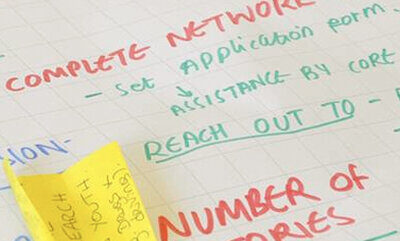 COMPLETE NETWORK
- Set Application form.
ASSISTANCE BY CORE
SION-
REACH OUT TO -
EARCH
YOUTH
NUMBER OF
ORIES